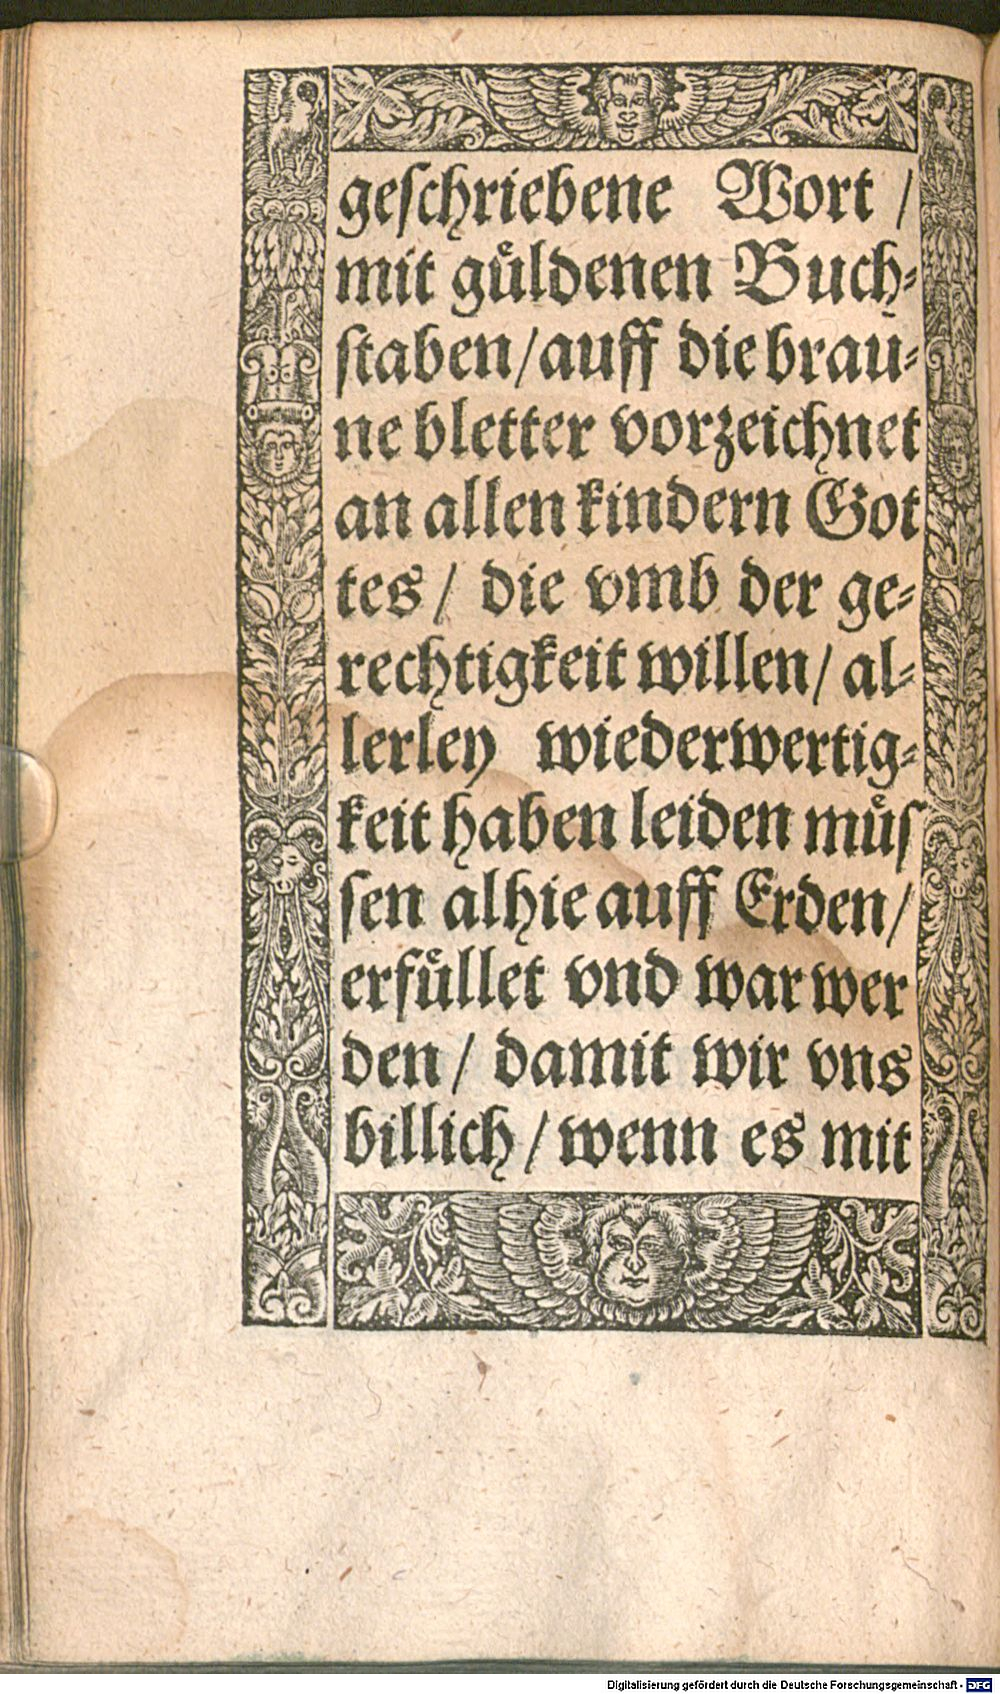 geſchriebene Wort /
mit guͤldenen Buch⸗
ſtaben / auff die brau⸗
ne bletter vorzeichnet
an allen kindern Got
tes / die vmb der ge⸗
rechtigkeit willen / al⸗
lerley wiederwertig⸗
keit haben leiden muͤſ
ſen alhie auff Erden /
erfuͤllet vnd war wer
den / damit wir vns
billich / wenn es mit
Digitalisierung gefördert durch die Deutsche Forschungsgemeinschaft - DFG